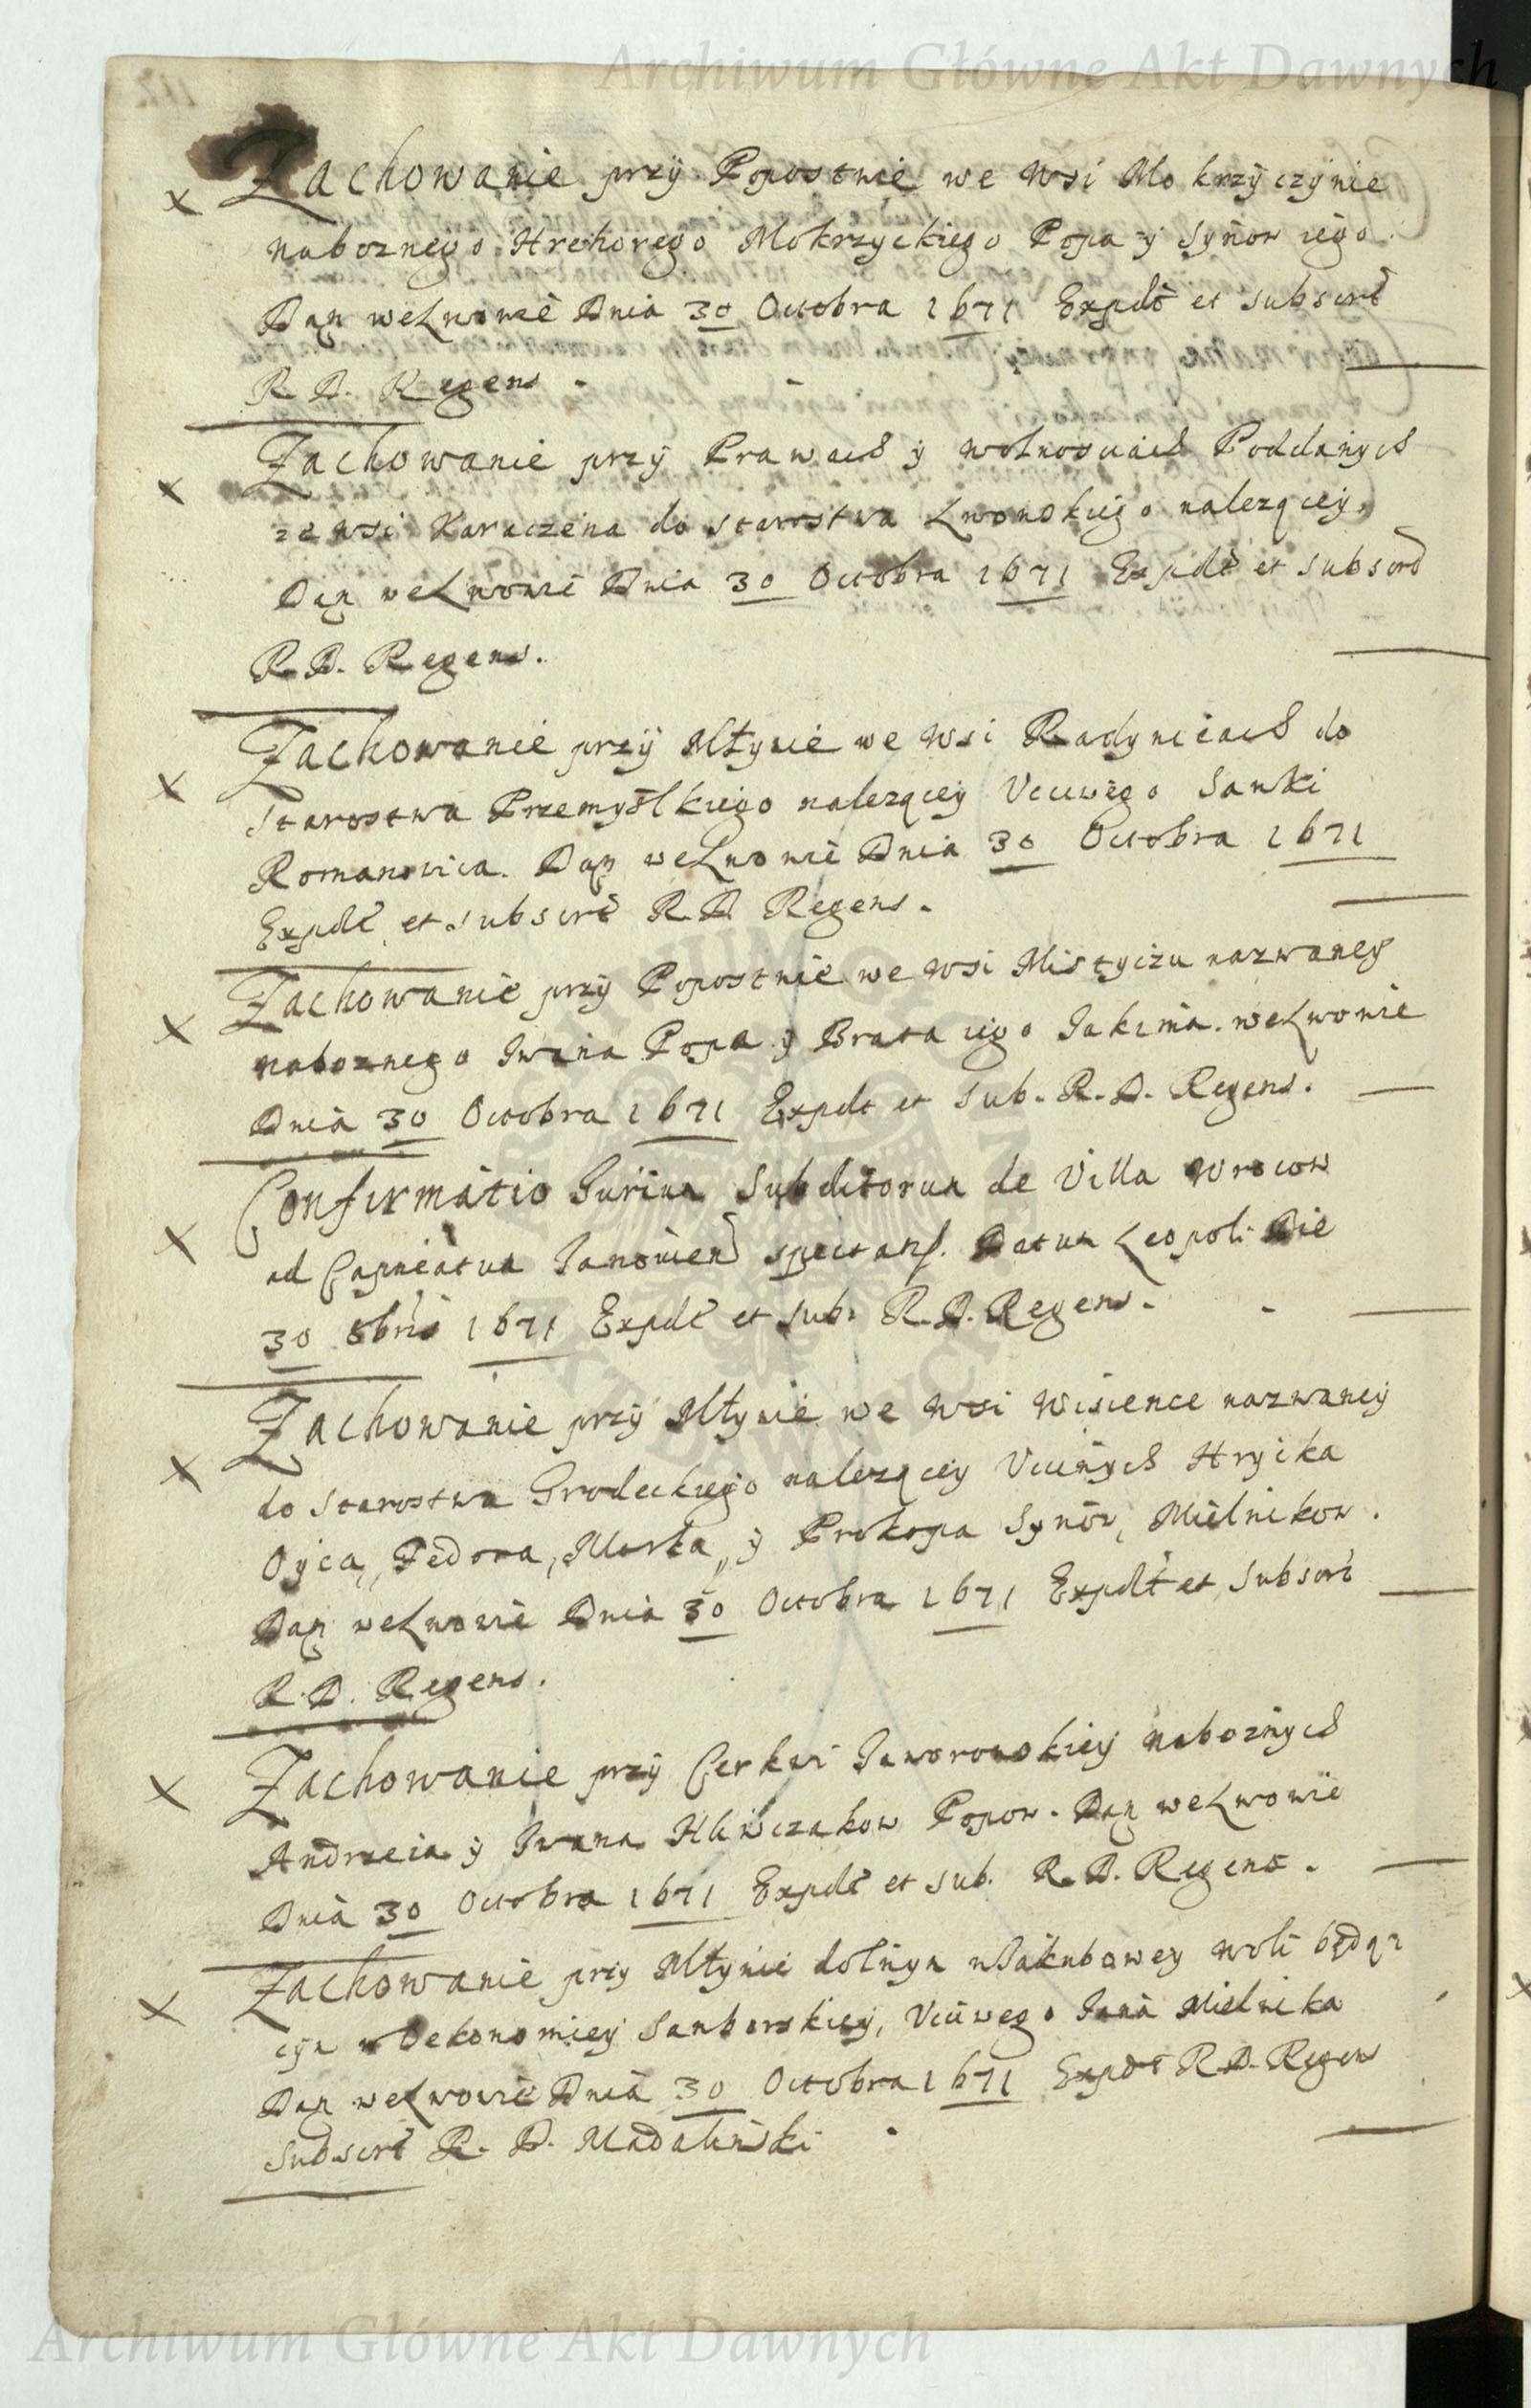 Archiwum Główne Akt Dawnych
Zachowanie przÿ Popostwie we Wsi Mokrzÿczÿnie
naboznego Hrehorego Mokrzyckiego Popa ÿ Synow iego.
Dan weLwowie Dnia 30 Octobra 1671 Expdt et subscrt
R. D. Regens.
Zachowanie przÿ Prawach ÿ Wolnosciach Poddanych
ze wsi Karaczena do starostwa Lwowskiego nalezącej,
Dan weLwowie Dnia 30 Octobra 1671 Expdt et subscrt
R. D. Regens.
Zachowanie przÿ Młynie we Wsi Radynicach do
Starostwa Przemyslkiego nalezącey Vcciwego Sanki
Romanowica. Dan weLwowie Dnia 30 Octobra 1671
Expdt et subscrt R. D. Regens.
Zachowanie przÿ Popostwie we wsi Mistyczu nazwaney
naboznego Iwana Popa ÿ Brata iego Jakima. weLwowie
Dnia 30 Octobra 1671 Expdt et sub. R. D. Regens.
Confirmatio Jurium Subditorum de Villa Wrocow
ad Capneatum Janovien spectans. Datum Leopoli Die
30 8bris 1671 Expdt et sub. R. D. Regens.
Zachowanie przÿ Młynie we Wsi Wisience nazwaneÿ
do starostwa Grodeckiego nalezącey Vcciwych Hrycka
Oyca, Fedora, Marka, ÿ Prokopa Synow, Mielnikow.
Dan weLwowie Dnia 30 Octobra 1671 Expdt et subscrt
R. D. Regens.
Zachowanie przÿ Cerkwi Jaworowskieÿ naboznych
Andrzeia ÿ Iwana Hliwczakow Popow. Dan weLwowie
Dnia 30 Octobra 1671 Expdt et sub. R. D. Regens.
Zachowanie przy Młynie dolnym wJakubowey woli będą
cym w Oekonomieÿ Samborskieÿ, Vcciwego Jana Mielnika
Dan weLwowie Dnia 30 Octobra 1671 Expdt R. D. Regens
Subscrt R. D. Madalinski
Archiwum Główne Akt Dawnych